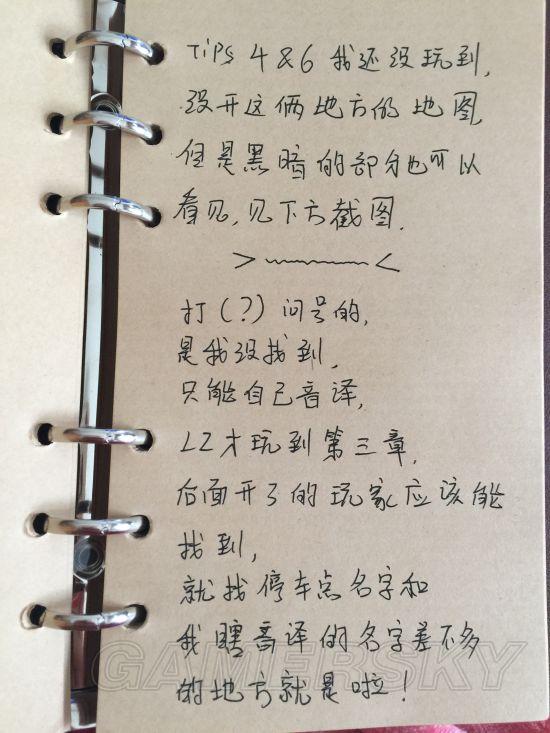 Tips 4&6 我还没玩到,
没开这俩地方的地图,
但是黑暗的部分也可以
看见,见下方截图.
打(?)问号的,
是我没找到,
只能自己音译,
LZ才玩到第三章,
后面开了的玩家应该能
找到,
就找停车点名字和
我瞎音译的名字差不多
的地方就是啦!
GAMERSKY